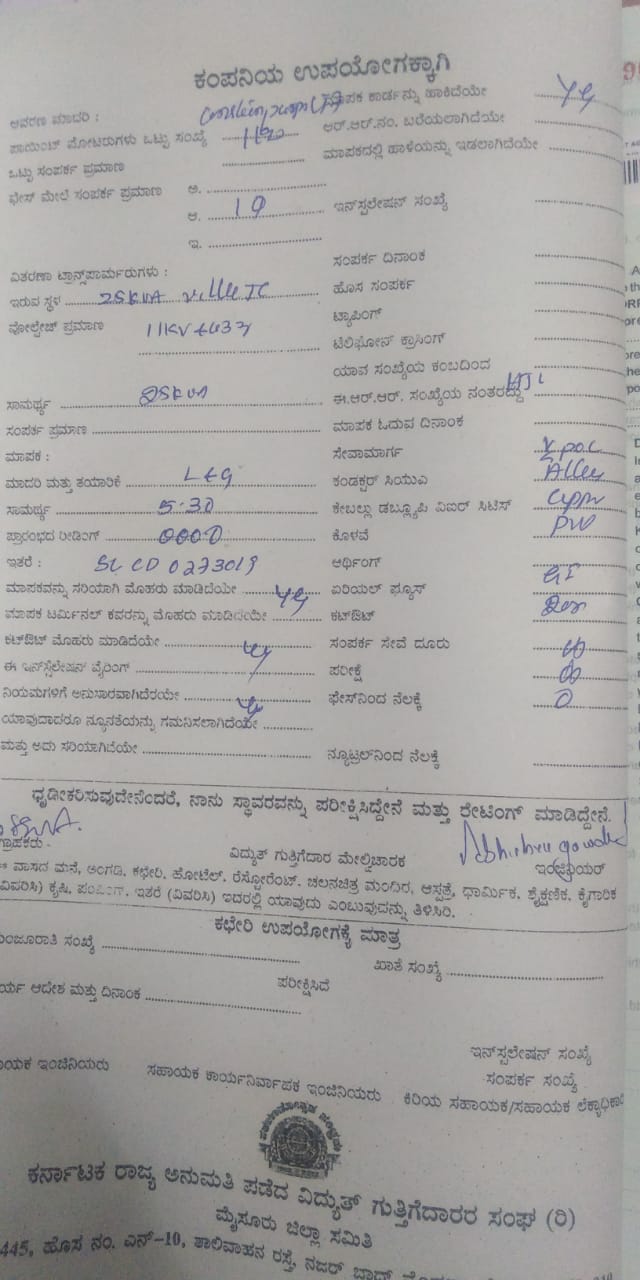 ಕಂಪನಿಯ ಉಪಯೋಗಕ್ಕಾಗಿ
ಆವರಣ ಮಾದರಿ :
ಮಾಪಕ ಕಾರ್ಡನ್ನು ಹಾಕಿದೆಯೇ Yes
ಪಾಯಿಂಟ್ ಮೋಟರುಗಳು ಒಟ್ಟು ಸಂಖ್ಯೆ
ಆರ್.ಆರ್.ನಂ. ಬರೆಯಲಾಗಿದೆಯೇ
ಒಟ್ಟು ಸಂಪರ್ಕ ಪ್ರಮಾಣ
ಮಾಪಕದಲ್ಲಿ ಹಾಳೆಯನ್ನು ಇಡಲಾಗಿದೆಯೇ
ಫೇಸ್ ಮೇಲೆ ಸಂಪರ್ಕ ಪ್ರಮಾಣ ಅ.
ಆ.
ಇನ್‌ಸ್ಟಲೇಷನ್ ಸಂಖ್ಯೆ
ಇ.
ಸಂಪರ್ಕ ದಿನಾಂಕ
ವಿತರಣಾ ಟ್ರಾನ್ಸ್‌ಫಾರ್ಮರುಗಳು :
ಇರುವ ಸ್ಥಳ 25KVA
ಹೊಸ ಸಂಪರ್ಕ
ವೋಲ್ಟೇಜ್ ಪ್ರಮಾಣ 11KV
ಟ್ಯಾಪಿಂಗ್
ಟೆಲಿಫೋನ್ ಕ್ರಾಸಿಂಗ್
ಯಾವ ಸಂಖ್ಯೆಯ ಕಂಬದಿಂದ
ಸಾಮರ್ಥ್ಯ 25KVA
ಈ.ಆರ್.ಆರ್. ಸಂಖ್ಯೆಯ ನಂತರದ್ದು
ಸಂಪರ್ಕ ಪ್ರಮಾಣ
ಮಾಪಕ ಓದುವ ದಿನಾಂಕ
ಮಾಪಕ :
ಸೇವಾಮಾರ್ಗ
ಮಾದರಿ ಮತ್ತು ತಯಾರಿಕೆ L&G
ಕಂಡಕ್ಟರ್ ಸಿಯುಎ
ಸಾಮರ್ಥ್ಯ 5-30
ಕೇಬಲ್ಲು ಡಬ್ಲ್ಯೂಪಿ ವಿಐಆರ್ ಸಿಟಿಸ್
ಪ್ರಾರಂಭದ ರೀಡಿಂಗ್ 0000
ಕೊಳವೆ
ಇತರೆ : SL CD 0273019
ಆರ್ಥಿಂಗ್ GI
ಮಾಪಕವನ್ನು ಸರಿಯಾಗಿ ಮೊಹರು ಮಾಡಿದೆಯೇ Yes
ಏರಿಯಲ್ ಫ್ಯೂಸ್
ಮಾಪಕ ಟರ್ಮಿನಲ್ ಕವರನ್ನು ಮೊಹರು ಮಾಡಿದೆಯೇ
ಕಟ್‌ಔಟ್
ಕಟ್‌ಔಟ್ ಮೊಹರು ಮಾಡಿದೆಯೇ
ಸಂಪರ್ಕ ಸೇವೆ ದೂರು
ಈ ಇನ್‌ಸ್ಟಲೇಷನ್ ವೈರಿಂಗ್
ಪರೀಕ್ಷೆ
ನಿಯಮಗಳಿಗೆ ಅನುಸಾರವಾಗಿದೆಯೇ
ಫೇಸ್‌ನಿಂದ ನೆಲಕ್ಕೆ 0
ಯಾವುದಾದರೂ ನ್ಯೂನತೆಯನ್ನು ಗಮನಿಸಲಾಗಿದೆಯೇ
ಮತ್ತು ಅದು ಸರಿಯಾಗಿದೆಯೇ
ನ್ಯೂಟ್ರಲ್‌ನಿಂದ ನೆಲಕ್ಕೆ
ಧೃಡೀಕರಿಸುವುದೇನೆಂದರೆ, ನಾನು ಸ್ಥಾವರವನ್ನು ಪರೀಕ್ಷಿಸಿದ್ದೇನೆ ಮತ್ತು ರೇಟಿಂಗ್ ಮಾಡಿದ್ದೇನೆ.
ಗ್ರಾಹಕರು
ವಿದ್ಯುತ್ ಗುತ್ತಿಗೆದಾರ ಮೇಲ್ವಿಚಾರಕ
ಇಂಜಿನಿಯರ್
ವಾಸದ ಮನೆ, ಅಂಗಡಿ, ಕಛೇರಿ, ಹೋಟೆಲ್, ರೆಸ್ಟೋರೆಂಟ್, ಚಲನಚಿತ್ರ ಮಂದಿರ, ಆಸ್ಪತ್ರೆ, ಧಾರ್ಮಿಕ, ಶೈಕ್ಷಣಿಕ, ಕೈಗಾರಿಕ
ವಿವರಿಸಿ) ಕೃಷಿ, ಪಂಪಿಂಗ್, ಇತರೆ (ವಿವರಿಸಿ) ಇದರಲ್ಲಿ ಯಾವುದು ಎಂಬುವುದನ್ನು ತಿಳಿಸಿರಿ.
ಕಛೇರಿ ಉಪಯೋಗಕ್ಕೆ ಮಾತ್ರ
ಮಂಜೂರಾತಿ ಸಂಖ್ಯೆ
ಖಾತೆ ಸಂಖ್ಯೆ
ಪರೀಕ್ಷಿಸಿದೆ
ಆದೇಶ ಮತ್ತು ದಿನಾಂಕ
ಇನ್‌ಸ್ಟಲೇಷನ್ ಸಂಖ್ಯೆ
ಸಂಪರ್ಕ ಸಂಖ್ಯೆ
ಇಂಜಿನಿಯರು
ಸಹಾಯಕ ಕಾರ್ಯನಿರ್ವಾಪಕ ಇಂಜಿನಿಯರು
ಕಿರಿಯ ಸಹಾಯಕ/ಸಹಾಯಕ ಲೆಕ್ಕಾಧಿಕಾರಿ
ಕರ್ನಾಟಕ ರಾಜ್ಯ ಅನುಮತಿ ಪಡೆದ ವಿದ್ಯುತ್ ಗುತ್ತಿಗೆದಾರರ ಸಂಘ (ರಿ)
ಮೈಸೂರು ಜಿಲ್ಲಾ ಸಮಿತಿ
445, ಹೊಸ ನಂ. ಎನ್-10, ಶಾಲಿವಾಹನ ರಸ್ತೆ, ನಜರ್ ಬಾದ್